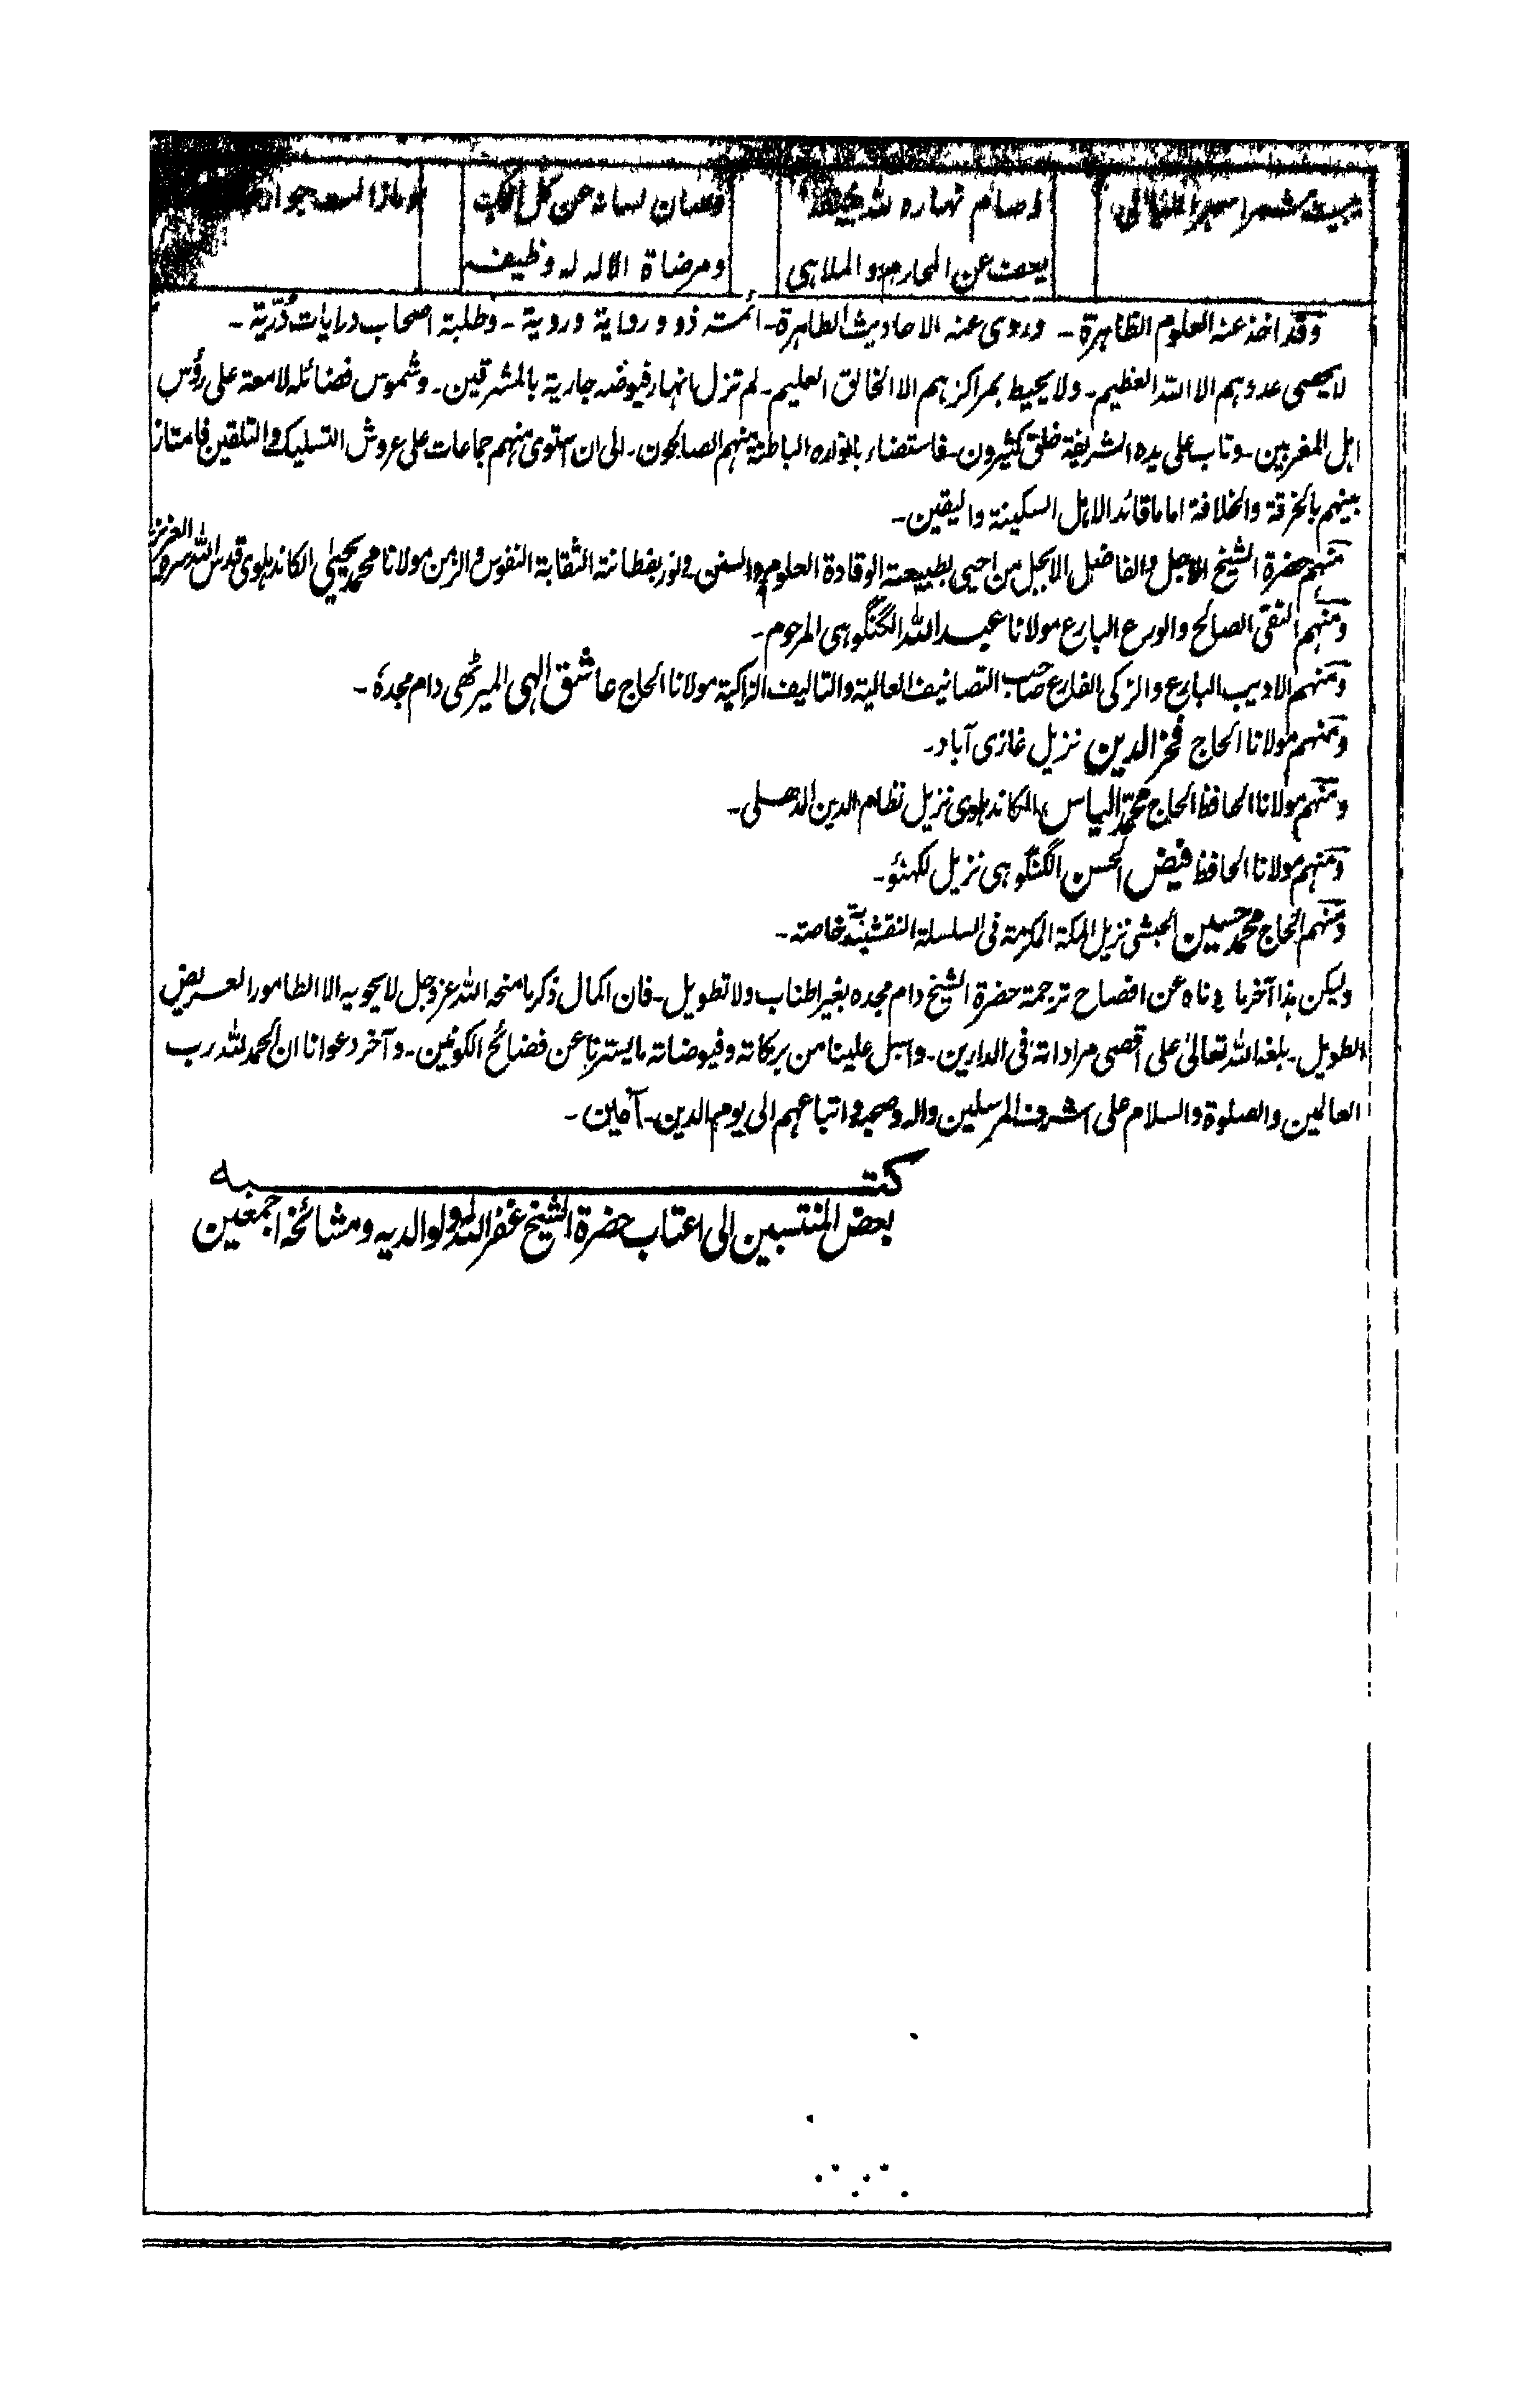 يبيت مشمرا سهر الليالي وصام نهاره لله خيفة وصان لسانه عن كل افك وما زالت جوا
يعف عن المحارم والملاهي ومرضاة الاله له وظيفه
وقد اخذ عنه العلوم الظاهرة۔ وروى عنه الاحاديث الطاهرة۔ ائمته ذوو رواية وروية۔ وطلبته اصحاب درايات دُرّية۔
لا يحصى عددہم الا الله العظيم۔ ولا يحيط بمراكزہم الا الخالق العليم۔ لم تزل انہار فيوضہ جارية بالمشرقين۔ وشموس فضائلہ لامعة على رؤس
اہل المغربين۔ وتاب على يده الشريفة خلق كثيرون۔ فاستضاء بانواره الباطنة منہم الصالحون۔ الى ان استوى منہم جماعات على عروش التسليك والتلقين فامتاز
بينہم بالخرقة والخلافة اماما قائدا لاہل السكينة واليقين۔
منہم حضرة الشيخ الاجل والفاضل الابجل من احيى بطبيعته الوقادة العلوم والسنن ونور بفطانته الثقابة النفوس والزمن مولانا محمد يحيىٰ الكاندہلوى قدس الله سره العزيز
ومنہم التقى الصالح والورع البارع مولانا عبد الله الگنگوہى المرحوم۔
ومنہم الاديب البارع والزكى الفارع صاحب التصانيف العالية والتاليف الزاكية مولانا الحاج عاشق الہى الميرٹھى دام مجدہ۔
ومنہم مولانا الحاج فخر الدين نزيل غازى آباد۔
ومنہم مولانا الحافظ الحاج محمد الياس الكاندہلوى نزيل نظام الدين الدھلى۔
ومنہم مولانا الحافظ فيض الحسن الگنگوہى نزيل لكهنؤ۔
ومنہم الحاج محمد حسين الحبشى نزيل المكة المكرمة فى السلسلة النقشبندية خاصتہ۔
وليكن ہذا آخر ما ناہ عن افصاح ترجمة حضرة الشيخ دام مجده بغير اطناب ولا تطويل۔ فان اكمال ذكر ما منحہ الله عز وجل لا يحويہ الا الطامور العريض
الطويل۔ بلغہ الله تعالىٰ على اقصى مراداتہ فى الدارين۔ واسبل علينا من بركاتہ وفيوضاتہ ما يسترنا عن فضائح الكونين۔ وآخر دعوانا ان الحمد لله رب
العالمين والصلوة والسلام على اشرف المرسلين والہ وصحبہ واتباعہم الى يوم الدين۔ آمين۔
كتبه
بعض المنتسبين الى اعتاب حضرة الشيخ غفر الله له ولوالديه ومشائخه اجمعين